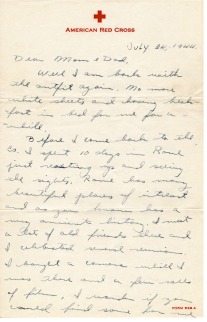 AMERICAN RED CROSS
July 24, 1944
Dear Mom & Dad,
Well I am back with the
outfit again. No more
white sheets and having breakfast
in bed for me for a
while.
Before I came back to the
Co. I spent 10 days in Rome
just resting up and seeing
the sights. Rome has many
beautiful places of interest
and as you know has a
very ancient history. I met
a lot of old friends there and
I celebrated several reunions.
I bought a camera while I
was there and a few rolls
of film. I wonder if you
could find some for me